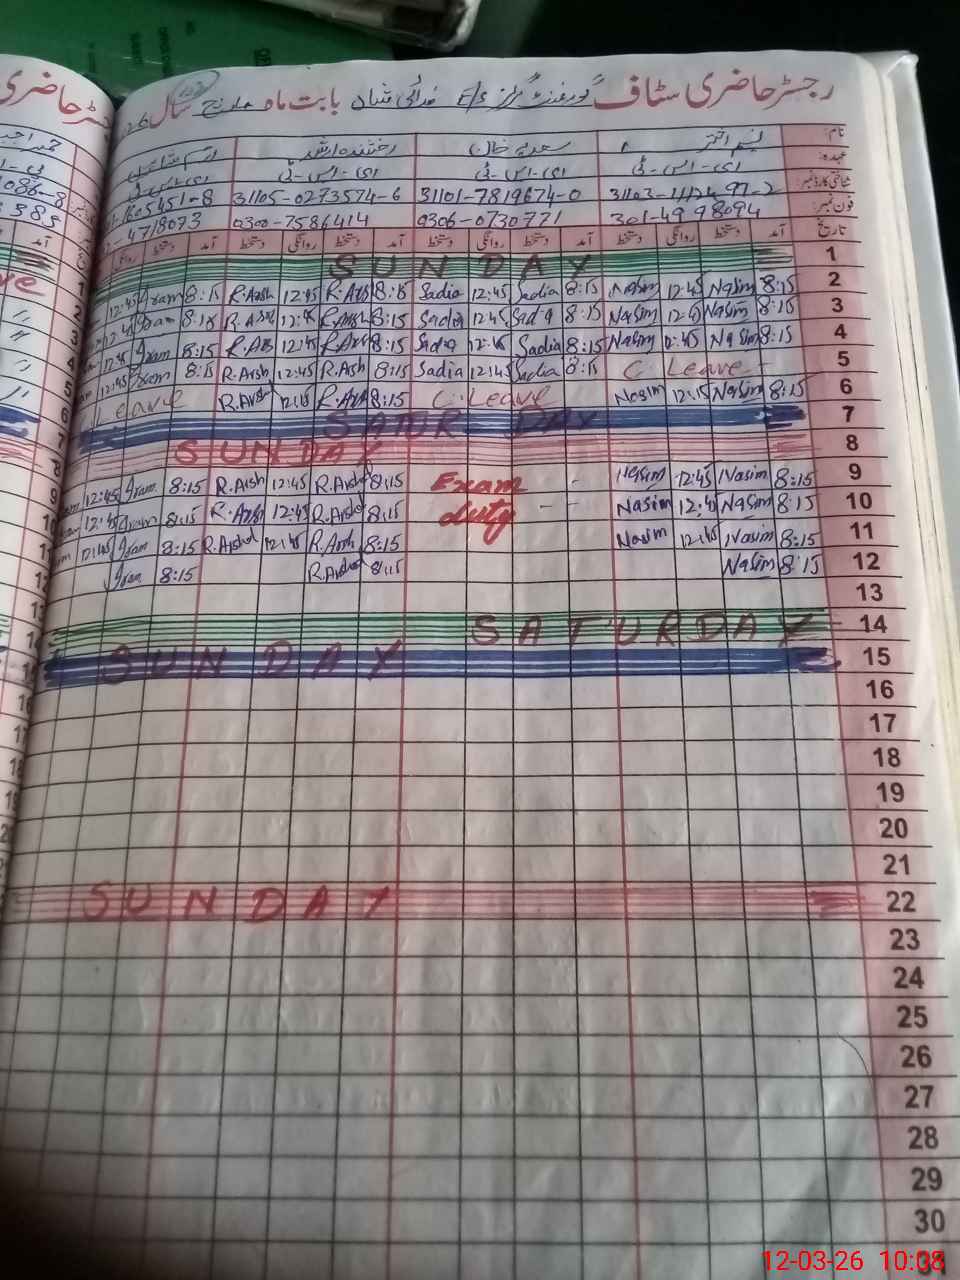 رجسٹر حاضری سٹاف گورنمنٹ گرلز E/S فدائی شاہ بابت ماہ مارچ سال 26
نام: نسیم اختر سعدیہ خان رخشندہ ارشد
عہدہ: ای-ایس-ٹی ای-ایس-ٹی ای-ایس-ٹی ای-ایس-ٹی
شناختی کارڈ نمبر: 31101-7819674-0 31105-0273574-6 1605451-8
فون نمبر: 301-4998094 0306-0730771 0300-7586414 4718073
تاریخ آمد دستخط روانگی دستخط آمد دستخط روانگی دستخط آمد دستخط روانگی دستخط آمد دستخط
1 SUNDAY
2 8:15 Nasim 12:45 Nasim 8:15 Sadia 12:45 Sadia 8:15 R.Arsh 12:45 R.Arsh 8:15 Iram 12:45
3 8:15 Nasim 12:45 Nasim 8:15 Sadia 12:45 Sadia 8:15 R.Arsh 12:45 R.Arsh 8:15 Iram 12:45
4 8:15 Nasim 12:45 Nasim 8:15 Sadia 12:45 Sadia 8:15 R.Arsh 12:45 R.Arsh 8:15 Iram 12:45
5 C. Leave 8:15 Sadia 12:45 Sadia 8:15 R.Arsh 12:45 R.Arsh 8:15 Iram 12:45
6 8:15 Nasim 12:15 Nasim C. Leave 8:15 R.Arsh 12:15 R.Arsh Leave
7 SATURDAY
8 SUNDAY
9 8:15 Nasim 12:45 Nasim Exam 8:15 R.Arsh 12:45 R.Arsh 8:15 Iram 12:45
10 8:15 Nasim 12:45 Nasim duty 8:15 R.Arshd 12:45 R.Arsh 8:15 Iram 12:45
11 8:15 Nasim 12:45 Nasim 8:15 R.Arsh 12:45 R.Arshd 8:15 Iram 12:45
12 8:15 Nasim 8:15 R.Arshd 8:15 Iram
13
14 SATURDAY
15 SUNDAY
16
17
18
19
20
21
22 SUNDAY
23
24
25
26
27
28
29
30
31
12-03-26 10:08